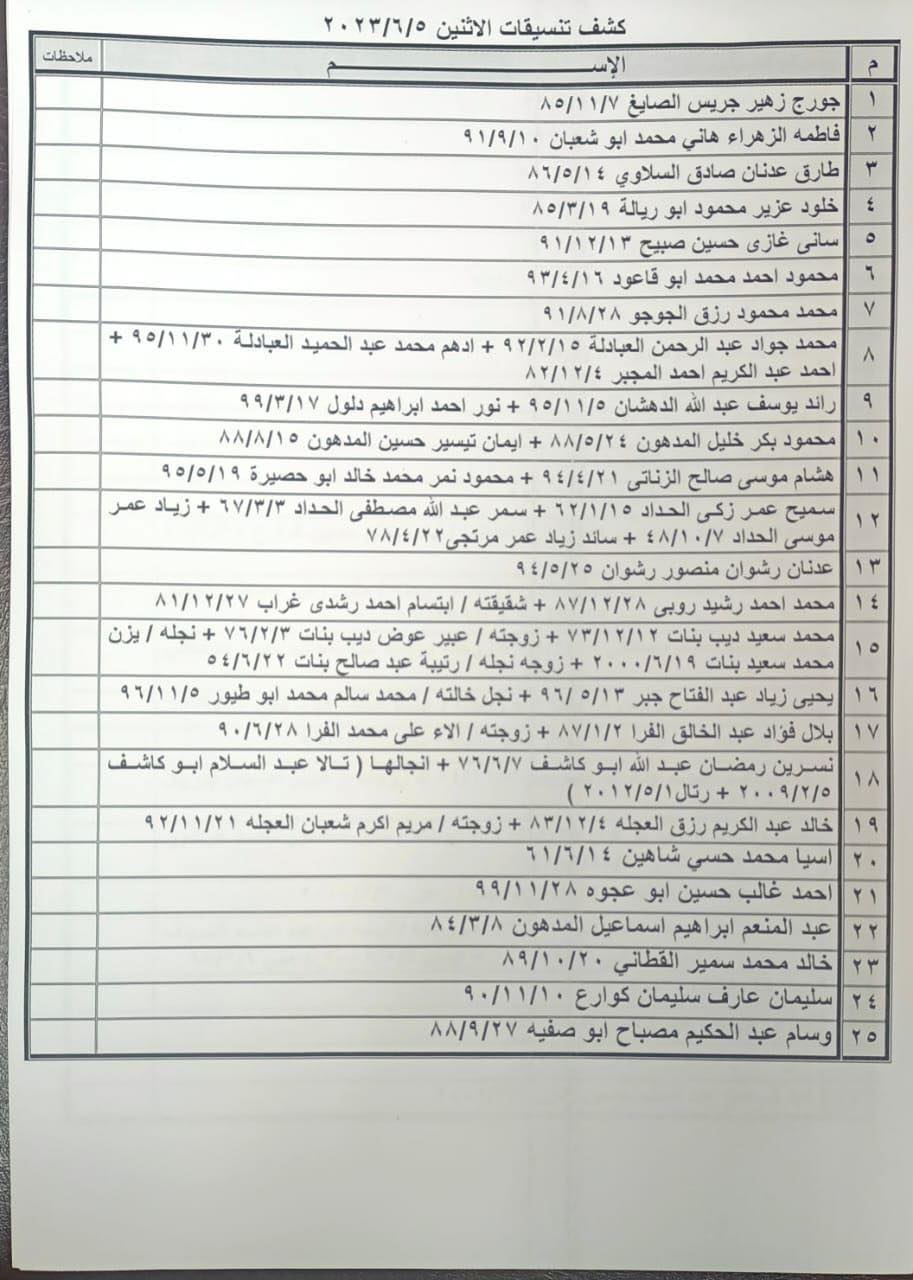 كشف تنسيقات الاثنين ٢٠٢٣/٦/٥
م الإســـــم ملاحظات
١ جورج زهير جريس الصايغ ٨٥/١١/٧
٢ فاطمه الزهراء هاني محمد ابو شعبان ٩١/٩/١٠
٣ طارق عدنان صادق السلاوي ٨٦/٥/١٤
٤ خلود عزير محمود ابو ريالة ٨٥/٣/١٩
٥ سانى غازى حسين صبيح ٩١/١٢/١٣
٦ محمود احمد محمد ابو قاعود ٩٣/٤/١٦
٧ محمد محمود رزق الجوجو ٩١/٨/٢٨
٨ محمد جواد عبد الرحمن العبادلة ٩٢/٢/١٥ + ادهم محمد عبد الحميد العبادلة ٩٥/١١/٣٠ +
احمد عبد الكريم احمد المجبر ٨٢/١٢/٤
٩ رائد يوسف عبد الله الدهشان ٩٥/١١/٥ + نور احمد ابراهيم دلول ٩٩/٣/١٧
١٠ محمود بكر خليل المدهون ٨٨/٥/٢٤ + ايمان تيسير حسين المدهون ٨٨/٨/١٥
١١ هشام موسى صالح الزناتى ٩٤/٤/٢١ + محمود نمر محمد خالد ابو حصيرة ٩٥/٥/١٩
١٢ سميح عمر زكى الحداد ٦٢/١/١٥ + سمر عبد الله مصطفى الحداد ٦٧/٣/٣ + زياد عمر
موسى الحداد ٤٨/١٠/٧ + سائد زياد عمر مرتجى٧٨/٤/٢٢
١٣ عدنان رشوان منصور رشوان ٩٤/٥/٢٥
١٤ محمد احمد رشيد روبى ٨٧/١٢/٢٨ + شقيقته / ابتسام احمد رشدى غراب ٨١/١٢/٢٧
١٥ محمد سعيد ديب بنات ٧٣/١٢/١٢ + زوجته / عبير عوض ديب بنات ٧٦/٢/٣ + نجله / يزن
محمد سعيد بنات ٢٠٠٠/٦/١٩ + زوجه نجله / رتيبة عبد صالح بنات ٥٤/٦/٢٢
١٦ يحيى زياد عبد الفتاح جبر ٩٦/ ٥/١٣ + نجل خالته / محمد سالم محمد ابو طيور ٩٦/١١/٥
١٧ بلال فؤاد عبد الخالق الفرا ٨٧/١/٢ + زوجته / الاء على محمد الفرا ٩٠/٦/٢٨
١٨ نسرين رمضان عبد الله ابو كاشف ٧٦/٦/٧ + انجالها ( تالا عبد السلام ابو كاشف
٢٠٠٩/٢/٥ + رتال٢٠١٢/٥/١ )
١٩ خالد عبد الكريم رزق العجله ٨٣/١٢/٤ + زوجته / مريم اكرم شعبان العجله ٩٢/١١/٢١
٢٠ اسيا محمد حسي شاهين ٦١/٦/١٤
٢١ احمد غالب حسين ابو عجوه ٩٩/١١/٢٨
٢٢ عبد المنعم ابراهيم اسماعيل المدهون ٨٤/٣/٨
٢٣ خالد محمد سمير القطاني ٨٩/١٠/٢٠
٢٤ سليمان عارف سليمان كوارع ٩٠/١١/١٠
٢٥ وسام عبد الحكيم مصباح ابو صفيه ٨٨/٩/٢٧